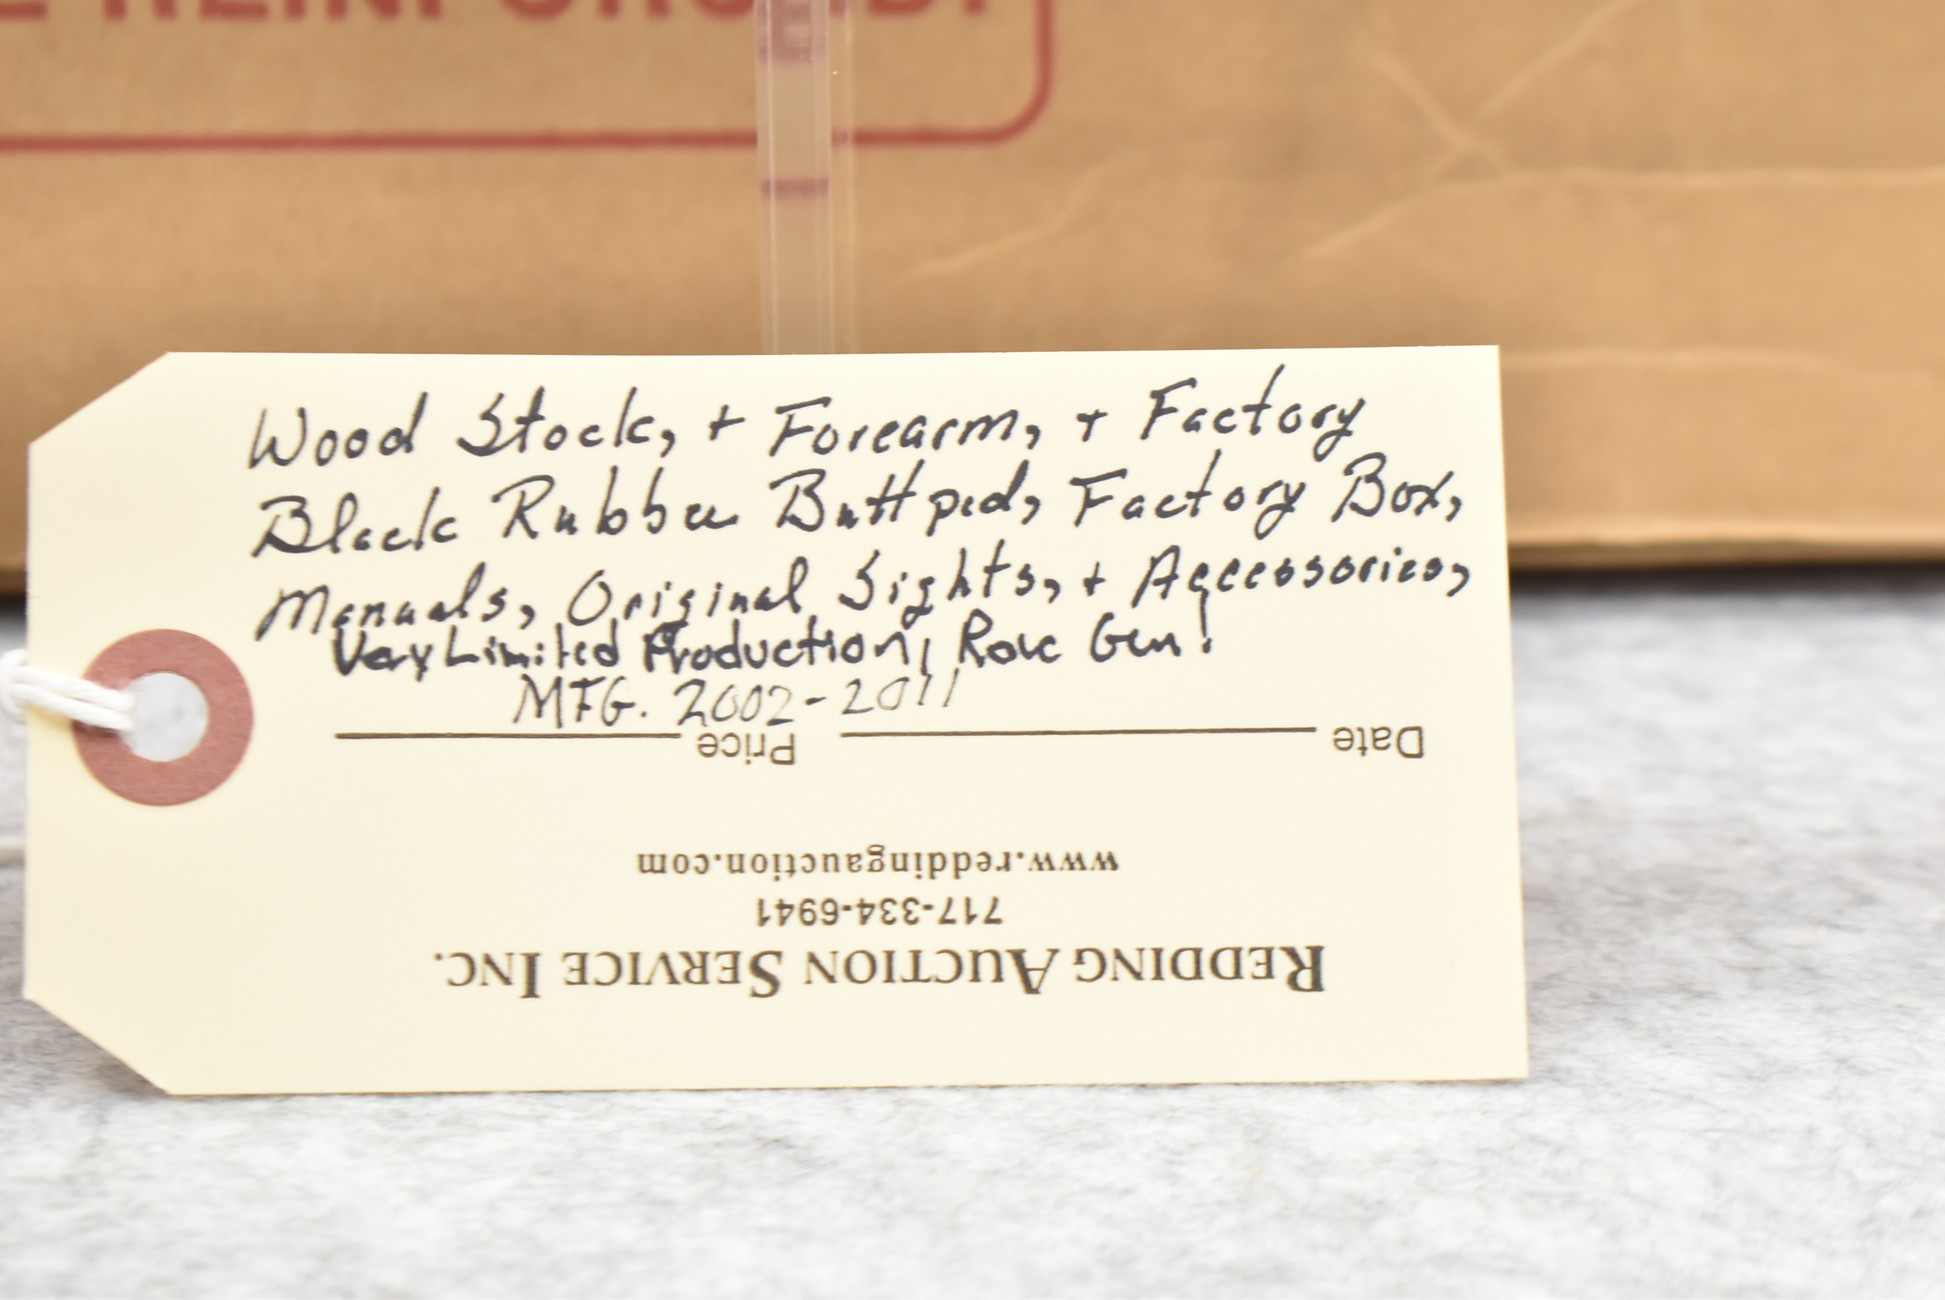 REINFORCED.
Wood Stock, + Forearm, + Factory
Black Rubber Buttpad, Factory Box,
Manuals, Original Sights, + Accessories,
Very Limited Production, Rare Gun!
MFG. 2002-2011
Date Price
www.reddingauction.com
717-334-6941
REDDING AUCTION SERVICE INC.